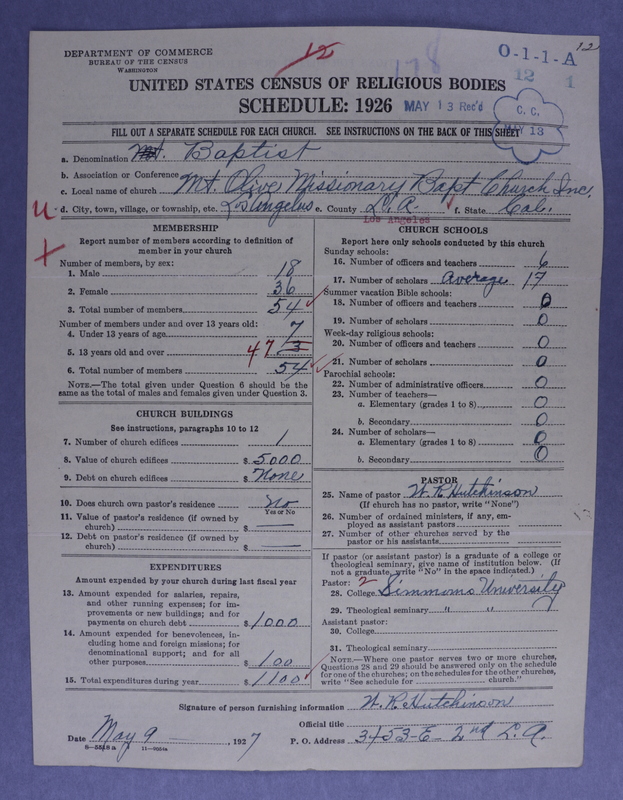 DEPARTMENT OF COMMERCE
BUREAU OF THE CENSUS
WASHINGTON
12
178
O-1-1-A
12
12 1
UNITED STATES CENSUS OF RELIGIOUS BODIES
SCHEDULE: 1926
MAY 13 Rec'd
C. C.
MAY 13
FILL OUT A SEPARATE SCHEDULE FOR EACH CHURCH. SEE INSTRUCTIONS ON THE BACK OF THIS SHEET
a. Denomination Mt. Baptist
b. Association or Conference
c. Local name of church Mt. Olive Missionary Bapt Church Inc.
u d. City, town, village, or township, etc. Los Angelus e. County L. A. f. State Cal.
Los Angeles
MEMBERSHIP
Report number of members according to definition of member in your church
Number of members, by sex:
1. Male 18
2. Female 36
3. Total number of members 54
Number of members under and over 13 years old:
4. Under 13 years of age 7
5. 13 years old and over 47 3
6. Total number of members 54
NOTE.—The total given under Question 6 should be the
same as the total of males and females given under Question 3.
CHURCH BUILDINGS
See instructions, paragraphs 10 to 12
7. Number of church edifices 1
8. Value of church edifices $ 5000
9. Debt on church edifices $ None
10. Does church own pastor's residence No
Yes or No
11. Value of pastor's residence (if owned by
church) $ —
12. Debt on pastor's residence (if owned by
church) $ —
EXPENDITURES
Amount expended by your church during last fiscal year
13. Amount expended for salaries, repairs,
and other running expenses; for im-
provements or new buildings; and for
payments on church debt $ 1000
14. Amount expended for benevolences, in-
cluding home and foreign missions; for
denominational support; and for all
other purposes $ 100
15. Total expenditures during year $ 1100
CHURCH SCHOOLS
Report here only schools conducted by this church
Sunday schools:
16. Number of officers and teachers 6
17. Number of scholars Average 17
Summer vacation Bible schools:
18. Number of officers and teachers 0
19. Number of scholars 0
Week-day religious schools:
20. Number of officers and teachers 0
21. Number of scholars 0
Parochial schools:
22. Number of administrative officers 0
23. Number of teachers—
a. Elementary (grades 1 to 8) 0
b. Secondary 0
24. Number of scholars—
a. Elementary (grades 1 to 8) 0
b. Secondary 0
PASTOR
25. Name of pastor W. R. Hutchinson
(If church has no pastor, write "None")
26. Number of ordained ministers, if any, em-
ployed as assistant pastors
27. Number of other churches served by the
pastor or his assistants
If pastor (or assistant pastor) is a graduate of a college or
theological seminary, give name of institution below. (If
not a graduate, write "No" in the space indicated.)
Pastor: 2
28. College Simmons University
29. Theological seminary " "
Assistant pastor:
30. College
31. Theological seminary
NOTE.—Where one pastor serves two or more churches,
Questions 28 and 29 should be answered only on the schedule
for one of the churches; on the schedules for the other churches,
write "See schedule for church."
Signature of person furnishing information W. R. Hutchinson
Official title
Date May 9, 1927 P. O. Address 3453-E- 2nd L. A.
8-5518 a 11-9054a